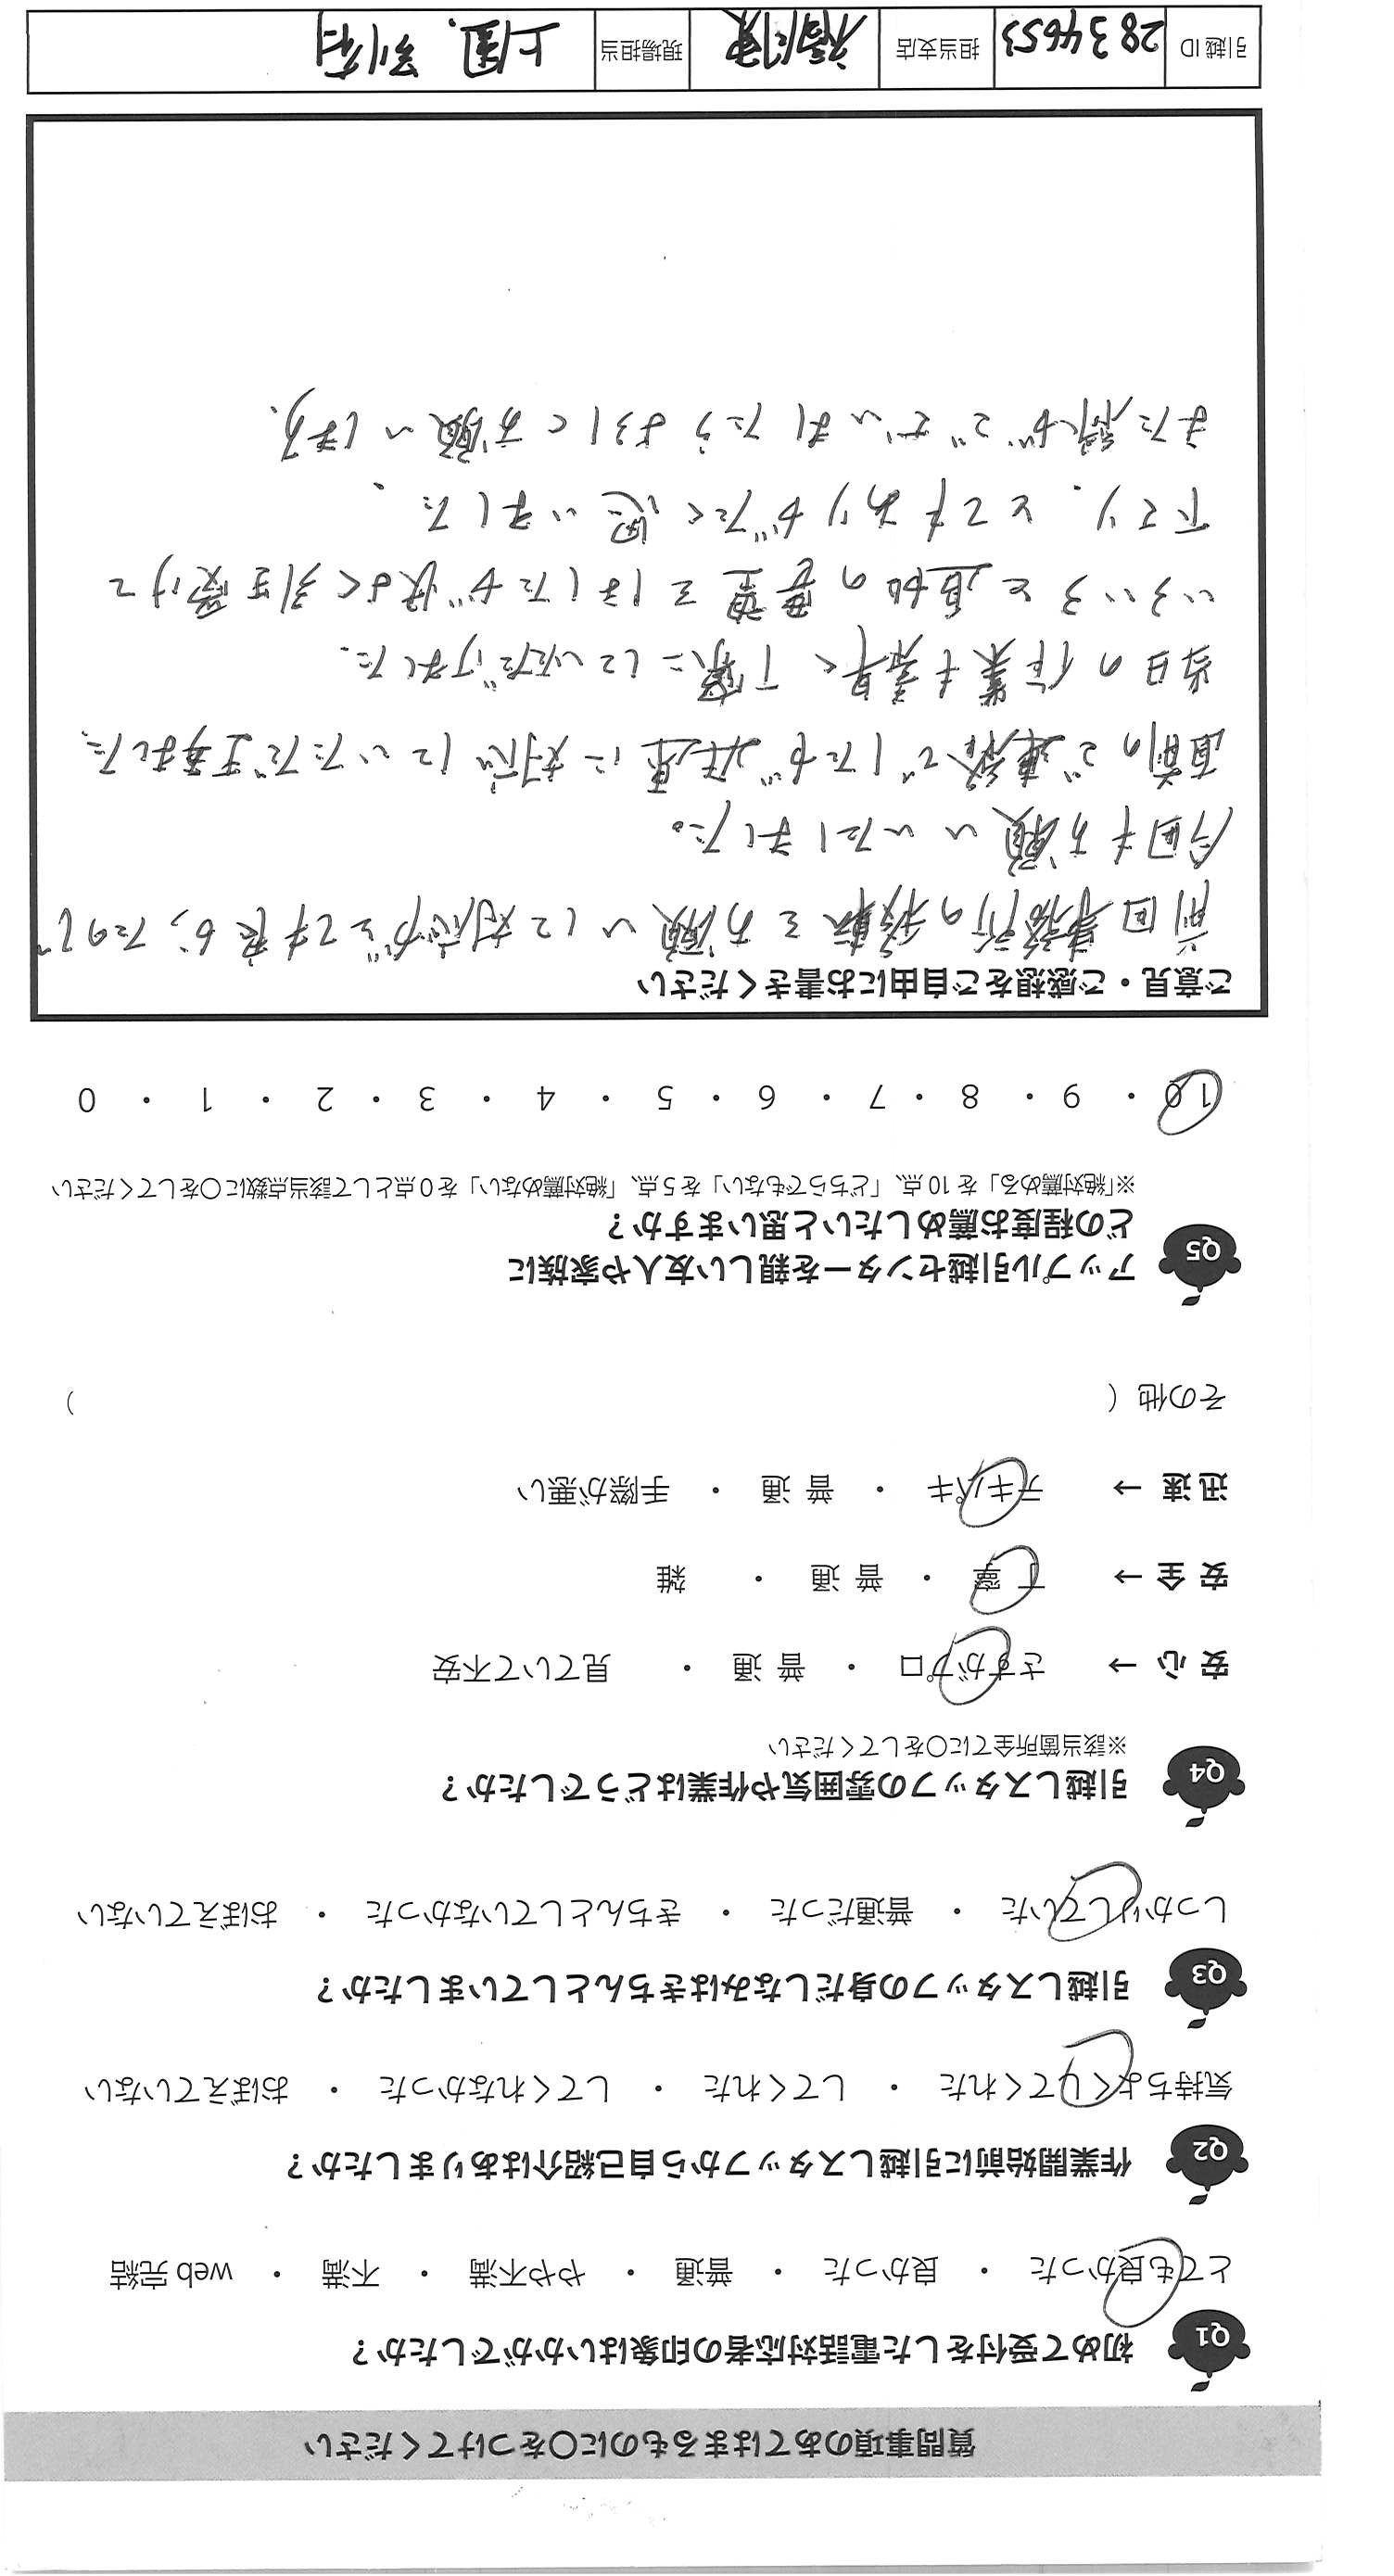 質問事項のあてはまるものに○をつけてください
Q1 初めて受付をした電話対応者の印象はいかがでしたか？
とても良かった ・ 良かった ・ 普通 ・ やや不満 ・ 不満 ・ web 完結
Q2 作業開始前に引越しスタッフから自己紹介はありましたか？
気持ちよくしてくれた ・ してくれた ・ してくれなかった ・ おぼえていない
Q3 引越しスタッフの身だしなみはきちんとしていましたか？
しっかりしていた ・ 普通だった ・ きちんとしていなかった ・ おぼえていない
Q4 引越しスタッフの雰囲気や作業はどうでしたか？
※該当箇所全てに○をしてください
安 心 → さすがプロ ・ 普 通 ・ 見ていて不安
安 全 → 丁 寧 ・ 普 通 ・ 雑
迅 速 → テキパキ ・ 普 通 ・ 手際が悪い
その他（ ）
Q5 アップル引越センターを親しい友人や家族に
どの程度お薦めしたいと思いますか？
※「絶対薦める」を 10 点、「どちらでもない」を 5 点、「絶対薦めない」を 0 点として該当点数に○をしてください
10 ・ 9 ・ 8 ・ 7 ・ 6 ・ 5 ・ 4 ・ 3 ・ 2 ・ 1 ・ 0
ご意見・ご感想をご自由にお書きください
前回事務所の移転をお願いして対応がとても良かったので
今回もお願いいたしました。
直前のご連絡でしたが迅速に対応していただき助ました。
当日の作業も素早く丁寧にしていただけました。
いろいろと追加の要望をしましたが快よく引き受けて
下さり、とてもありがたく思いました。
また縁がございましたらよろしくお願いします.
引越 ID 2834653 担当支店 横浜 現場担当 上園.